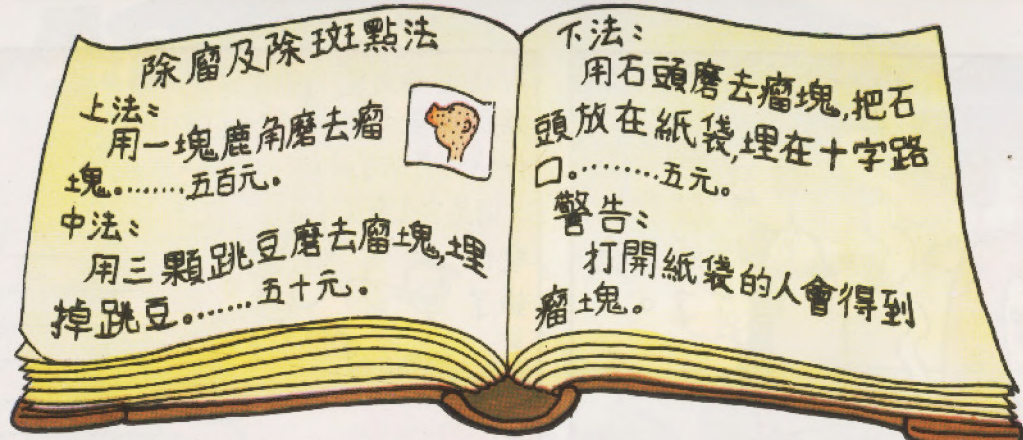 除瘤及除斑點法
上法：
用一塊鹿角磨去瘤
塊。........五百元。
中法：
用三顆跳豆磨去瘤塊,埋
掉跳豆。.......五十元。
下法：
用石頭磨去瘤塊,把石
頭放在紙袋,埋在十字路
口。.........五元。
警告：
打開紙袋的人會得到
瘤塊。